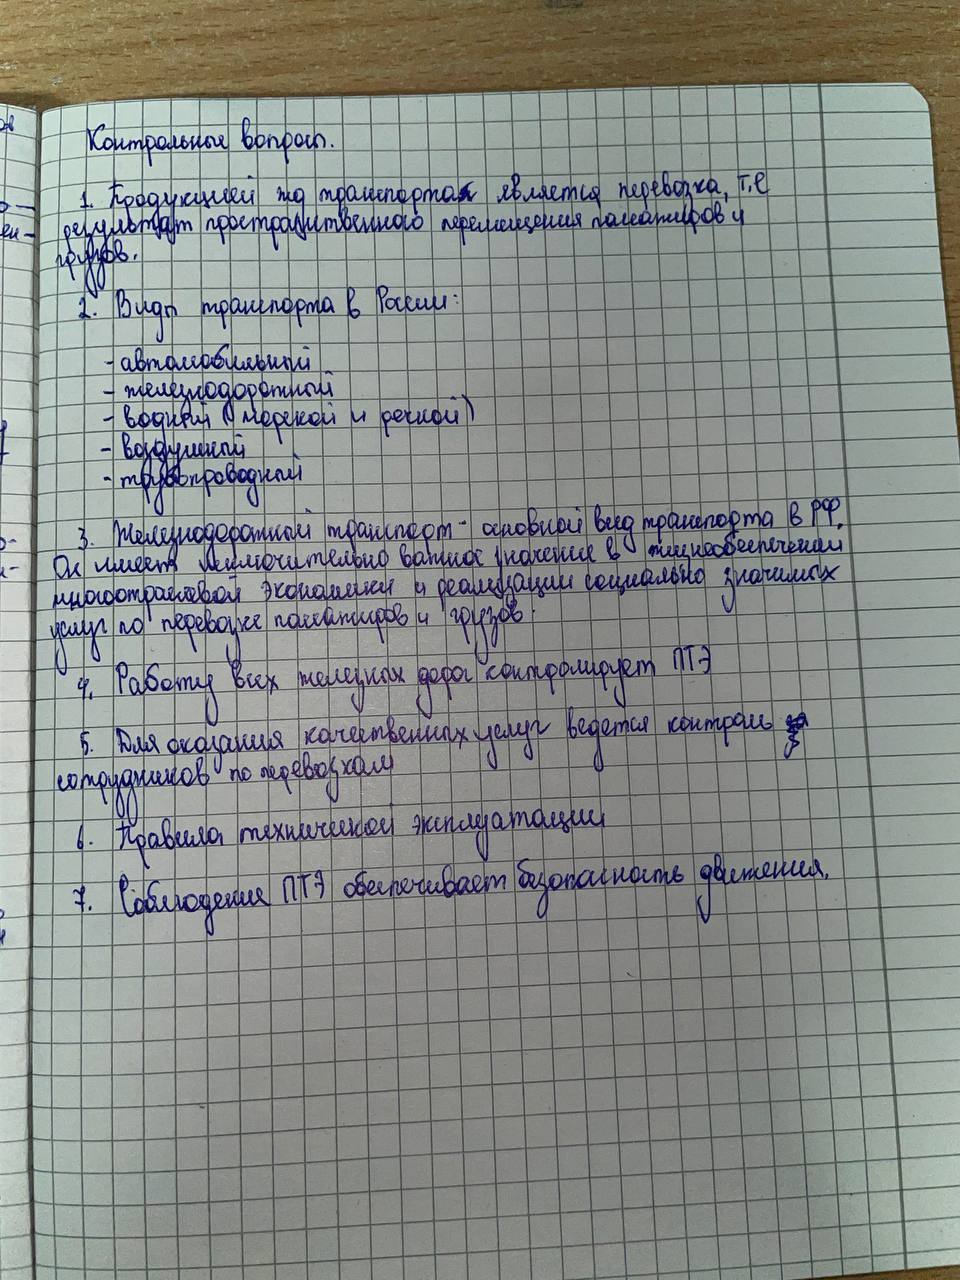 Контрольные вопросы.
1. Продукцией жд транспорта является перевозка, т.е
результат пространственного перемещения пассажиров и
грузов.
2. Виды транспорта в России:
- автомобильный
- железнодорожный
- водный (морской и речной)
- воздушный
- трубопроводный
3. Железнодорожный транспорт - основной вид транспорта в РФ.
Он имеет исключительно важное значение в жизнеобеспечении
многоотраслевой экономики и реализации социально значимых
услуг по перевозке пассажиров и грузов.
4. Работу всех железных дорог контролирует ПТЭ
5. Для оказания качественных услуг ведется контроль
сотрудников по перевозкам
6. Правила технической эксплуатации
7. Соблюдение ПТЭ обеспечивает безопасность движения.